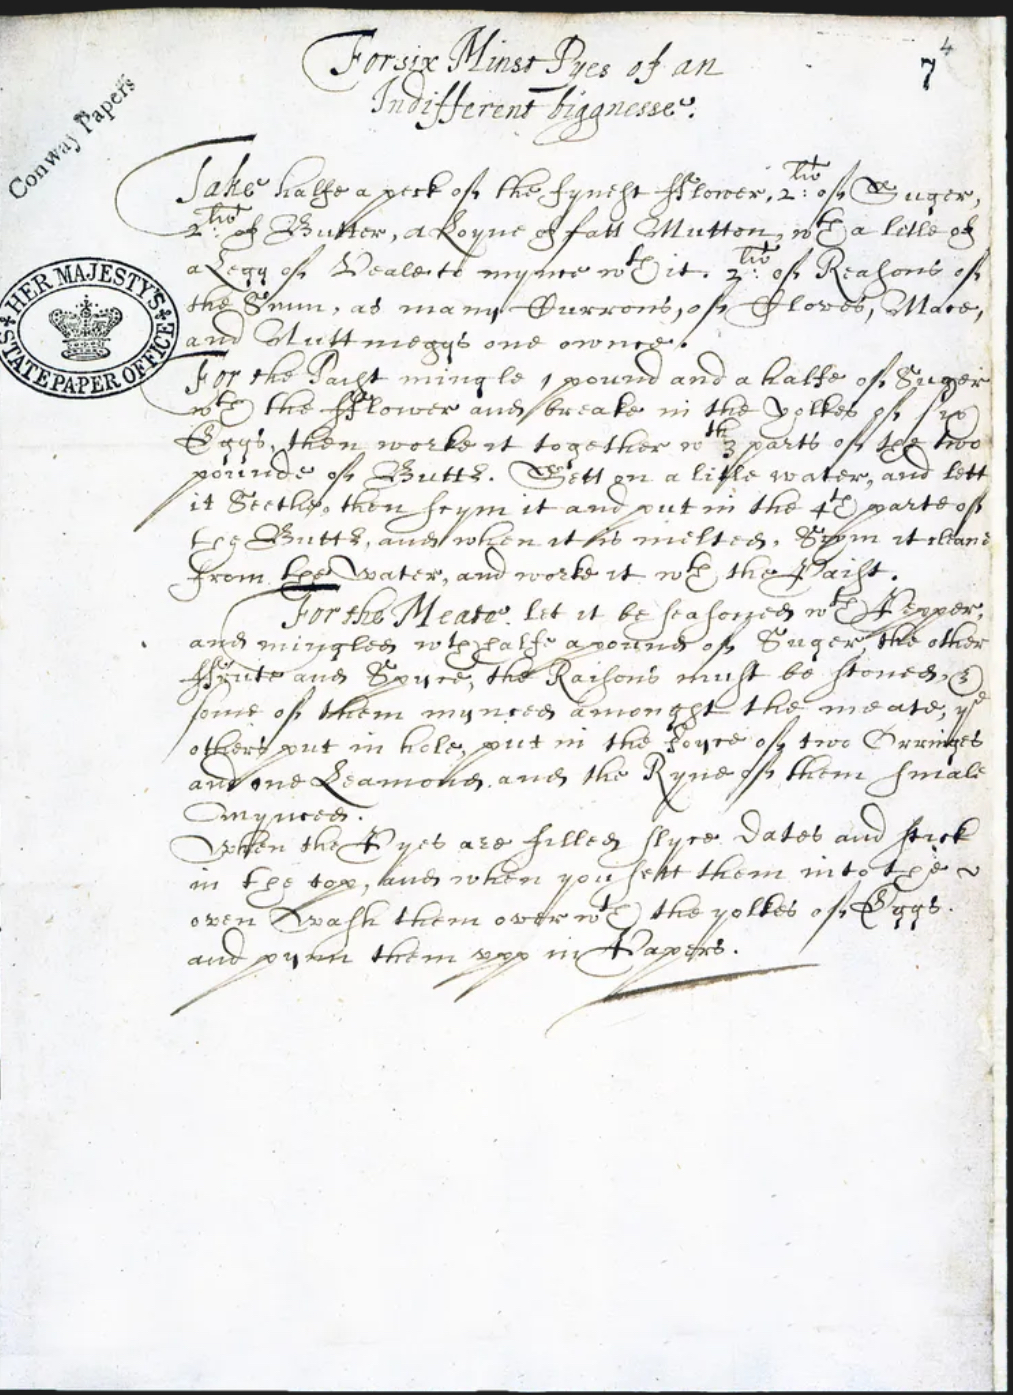 4
7
Conway Papers
For six Minst Pyes of an
Indifferent biggnesse.
Take halfe a peck of the fynest fflower, 2: līb of Suger,
2: līb of Butter, a Loyne of fatt Mutton, wth a litle of
a Legg of Veale to mynce wth it. 2: līb of Reasons of
the Sunn, as many Currons, of Cloves, Mace,
and Nuttmeggs one ownce.
HER MAJESTY'S
STATE PAPER OFFICE
For the Paist mingle 1 pound and a halfe of Suger
wth the fflower and breake in the yolkes of six
Eggs, then worke it together wth 3 parts of the two
pounde of Butter. Sett on a litle water, and lett
it Seethe, then scym it and put in the 4th parte of
the Butter, and when it is melted, Scym it cleane
from the Water, and worke it wth the Paist.
For the Meate. let it be seasoned wth Pepper,
and mingled wth halfe a pound of Suger, the other
ffrute and Spyce, the Raisons must be stoned, &
some of them mynced amongst the meate, ye
others put in hole, put in the Joyce of two Orringes
and one Leamond, and the Ryne of them smale
Mynced.
When the Pyes are filled slyce Dates and stick
in the top, and when you sett them into the
oven Wash them over wth the yolkes of Eggs.
and pynn them upp in Papers.